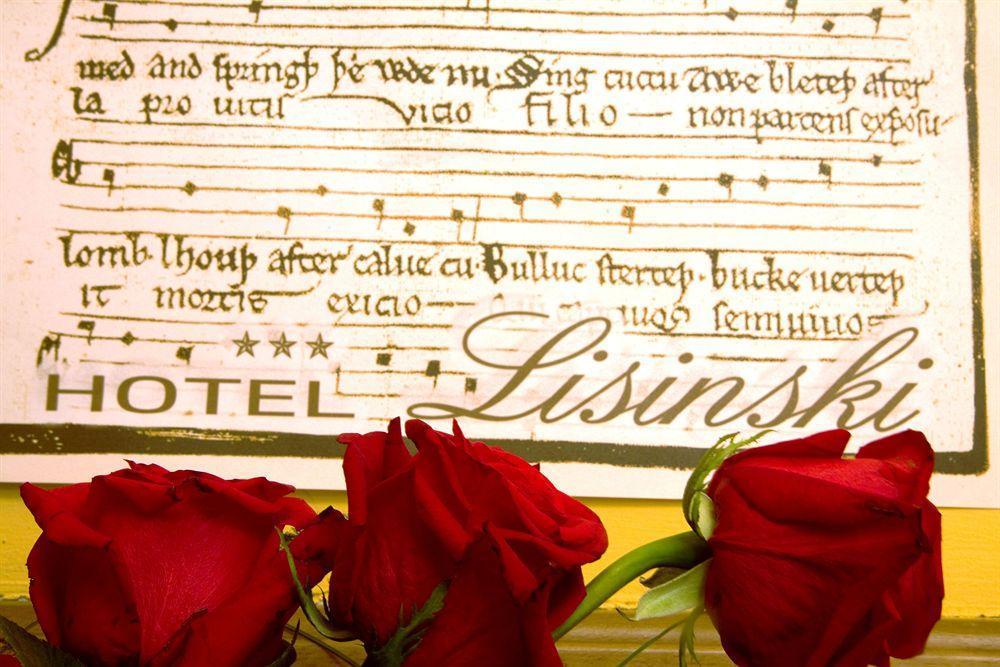 med and springþ þe wde nu. Sing cuccu Awe bleteþ after
la pro uitis vicio filio — non parcens exposu-
lomb. lhouþ after calue cu. Bulluc sterteþ. bucke uerteþ
it mortis exicio — semiuiuos
HOTEL Lisinski